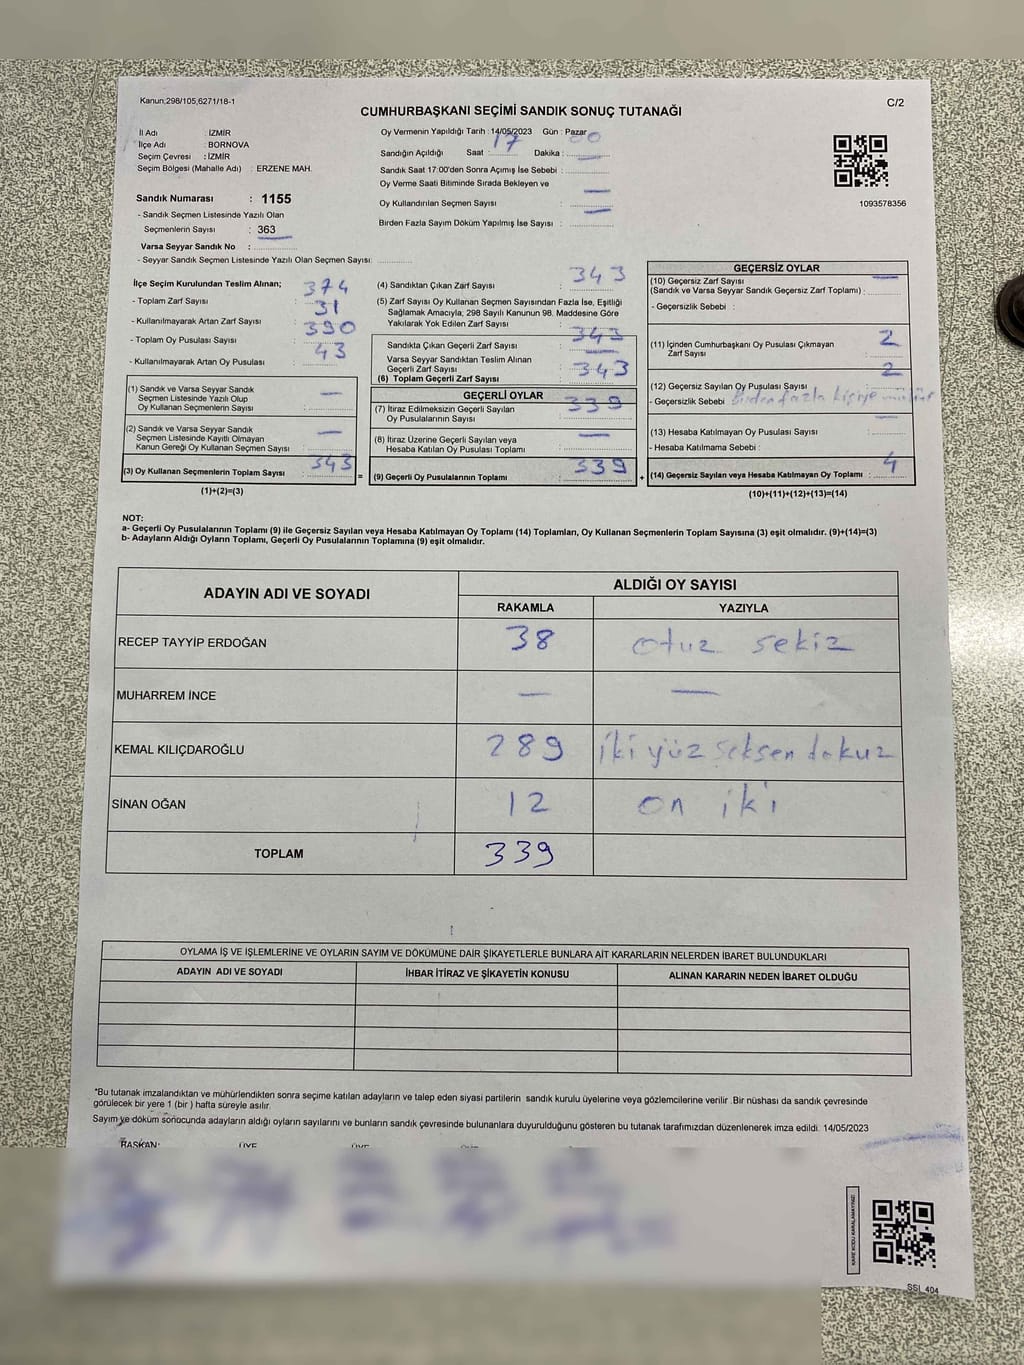 Kanun;298/105,6271/18-1
C/2
CUMHURBAŞKANI SEÇİMİ SANDIK SONUÇ TUTANAĞI
İl Adı : İZMİR
İlçe Adı : BORNOVA
Seçim Çevresi : İZMİR
Seçim Bölgesi (Mahalle Adı) : ERZENE MAH.
Sandık Numarası : 1155
- Sandık Seçmen Listesinde Yazılı Olan
Seçmenlerin Sayısı : 363
Varsa Seyyar Sandık No :
- Seyyar Sandık Seçmen Listesinde Yazılı Olan Seçmen Sayısı:
Oy Vermenin Yapıldığı Tarih : 14/05/2023 Gün : Pazar
Sandığın Açıldığı Saat : 17 Dakika : 00
Sandık Saat 17:00'den Sonra Açımış İse Sebebi :
Oy Verme Saati Bitiminde Sırada Bekleyen ve
Oy Kullandırılan Seçmen Sayısı : —
Birden Fazla Sayım Döküm Yapılmış İse Sayısı : —
1093578356
İlçe Seçim Kurulundan Teslim Alınan;
- Toplam Zarf Sayısı : 374
- Kullanılmayarak Artan Zarf Sayısı : 31
- Toplam Oy Pusulası Sayısı : 390
- Kullanılmayarak Artan Oy Pusulası : 43
(1) Sandık ve Varsa Seyyar Sandık
Seçmen Listesinde Yazılı Olup
Oy Kullanan Seçmenlerin Sayısı : —
(2) Sandık ve Varsa Seyyar Sandık
Seçmen Listesinde Kayıtlı Olmayan
Kanun Gereği Oy Kullanan Seçmen Sayısı : —
(3) Oy Kullanan Seçmenlerin Toplam Sayısı : 343
(1)+(2)=(3)
(4) Sandıktan Çıkan Zarf Sayısı : 343
(5) Zarf Sayısı Oy Kullanan Seçmen Sayısından Fazla İse, Eşitliği
Sağlamak Amacıyla; 298 Sayılı Kanunun 98. Maddesine Göre
Yakılarak Yok Edilen Zarf Sayısı :
Sandıkta Çıkan Geçerli Zarf Sayısı : 343
Varsa Seyyar Sandıktan Teslim Alınan
Geçerli Zarf Sayısı : —
(6) Toplam Geçerli Zarf Sayısı : 343
GEÇERLİ OYLAR
(7) İtiraz Edilmeksizin Geçerli Sayılan
Oy Pusulasının Sayısı : 339
(8) İtiraz Üzerine Geçerli Sayılan veya
Hesaba Katılan Oy Pusulası Toplamı : —
= (9) Geçerli Oy Pusulalarının Toplamı : 339
GEÇERSİZ OYLAR
(10) Geçersiz Zarf Sayısı
(Sandık ve Varsa Seyyar Sandık Geçersiz Zarf Toplamı) : —
- Geçersizlik Sebebi :
(11) İçinden Cumhurbaşkanı Oy Pusulası Çıkmayan
Zarf Sayısı : 2
(12) Geçersiz Sayılan Oy Pusulası Sayısı : 2
- Geçersizlik Sebebi Birden fazla kişiye mühür
(13) Hesaba Katılmayan Oy Pusulası Sayısı : —
- Hesaba Katılmama Sebebi :
+ (14) Geçersiz Sayılan veya Hesaba Katılmayan Oy Toplamı : 4
(10)+(11)+(12)+(13)=(14)
NOT:
a- Geçerli Oy Pusulalarının Toplamı (9) ile Geçersiz Sayılan veya Hesaba Katılmayan Oy Toplamı (14) Toplamları, Oy Kullanan Seçmenlerin Toplam Sayısına (3) eşit olmalıdır. (9)+(14)=(3)
b- Adayların Aldığı Oyların Toplamı, Geçerli Oy Pusulalarının Toplamına (9) eşit olmalıdır.
ADAYIN ADI VE SOYADI
ALDIĞI OY SAYISI
RAKAMLA YAZIYLA
RECEP TAYYİP ERDOĞAN 38 otuz sekiz
MUHARREM İNCE — —
KEMAL KILIÇDAROĞLU 289 iki yüz seksen dokuz
SİNAN OĞAN 12 on iki
TOPLAM 339
OYLAMA İŞ VE İŞLEMLERİNE VE OYLARIN SAYIM VE DÖKÜMÜNE DAİR ŞİKAYETLERLE BUNLARA AİT KARARLARIN NELERDEN İBARET BULUNDUKLARI
ADAYIN ADI VE SOYADI İHBAR İTİRAZ VE ŞİKAYETİN KONUSU ALINAN KARARIN NEDEN İBARET OLDUĞU
*Bu tutanak imzalandıktan ve mühürlendikten sonra seçime katılan adayların ve talep eden siyasi partilerin sandık kurulu üyelerine veya gözlemcilerine verilir .Bir nüshası da sandık çevresinde
görülecek bir yere 1 (bir ) hafta süreyle asılır.
Sayım ve döküm sonucunda adayların aldığı oyların sayılarını ve bunların sandık çevresinde bulunanlara duyurulduğunu gösteren bu tutanak tarafımızdan düzenlenerek imza edildi. 14/05/2023
BAŞKAN: ÜYE ÜYE
KARE KODU KARALAMAYINIZ!
SSI_404